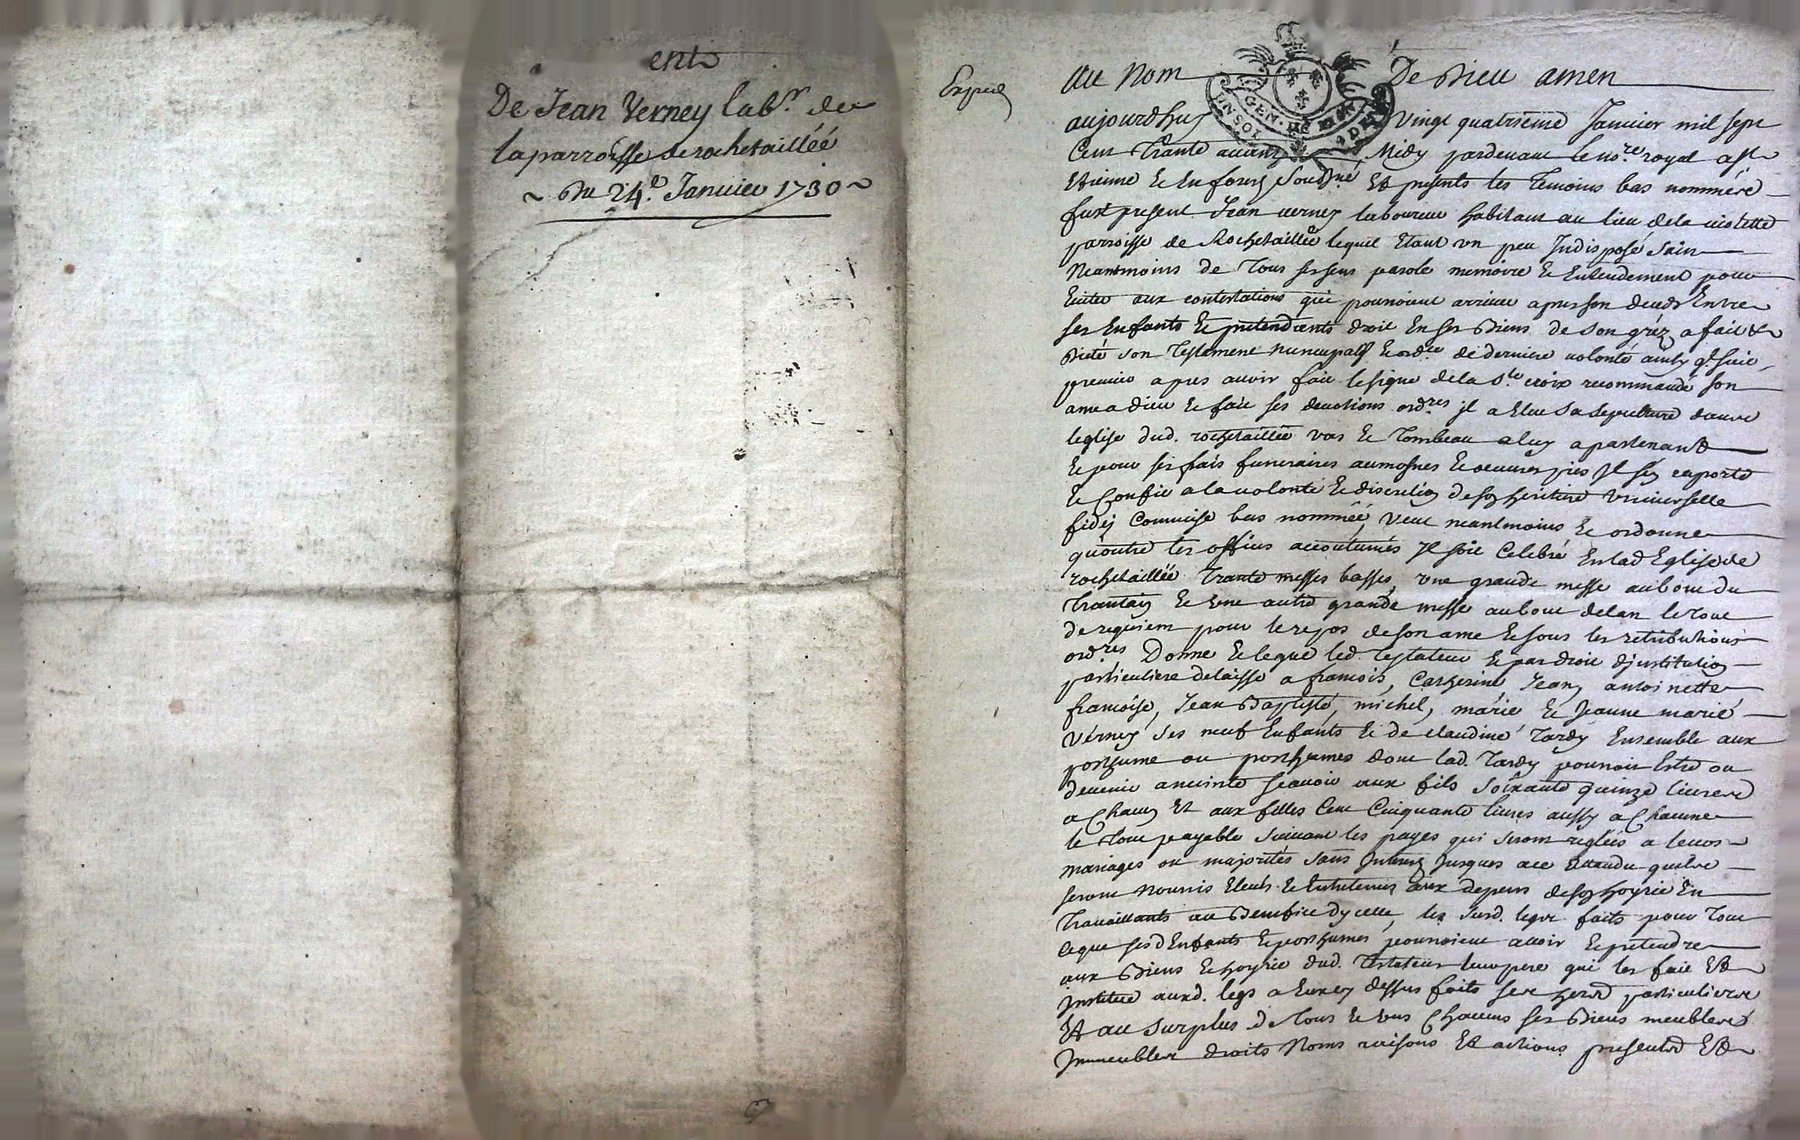 ent
De Jean Verney lab.r de
la parroisse de rochetailléé
~ Du 24.e Janvier 1730 ~
Exped
au Nom De Dieu amen
GEN. DE LYON
aujourdhuy Vingt quatrieme Janvier mil sept
Cent Trante avant Midy pardevant le no.re royal a St
Etienne Et en forest Soussigné Et presents les Temoins bas nommés
fust present Jean verney laboureur habitant au lieu de la violette
parroisse de Rochetaillée lequel Etant un peu Indisposé Sain
Neantmoins de Tous ses sens parole memoire Et Entendement pour
Eviter aux contestations qui pourroient arriver apres son deceds Entre
ses Enfants Et pretendants droit En ses Biens de son gréz a fait &
Dicté son Testament nuncupatif Et ord.ce de derniere volonté ainsy q.e suit,
premier apres avoir fait le signe de la S.te croix recommandé son
ame a dieu Et fait ses devotions ord.res jl a Elue Sa Sepulture dans
leglise dud. rochetaillée vas Et Tombeau a luy apartenant
Et pour ses frais funeraires aumosnes Et oeuvres pies Jl sen raporte
Et Confie a la volonté Et discretion de son heritiere Universelle
fidei Commise bas nomméé, Veut neantmoins Et ordonne
quoutre les offices accoutumés Jl soit Celebré En lad Eglise de
rochetaillée Trante messes basses, une grande messe au bout du
Trantain Et Une autre grande messe au bout de lan le Tout
de requiem pour le repos de son ame Et sous les retributions
ord.res Donne Et legue led. Testateur Et par droit djnstitution
particuliere delaisse a francois, Catherine Jean, antoinette
francoise, Jean Baptiste, michel, marie Et Jeanne marie
Verney ses neuf Enfants Et de claudine Tardy Ensemble aux
posthume ou posthumes dont lad. Tardy pourroit Estre ou
devenir anceinte scavoir aux fils Soixante quinze livres
a Chacun Et aux filles Cent Cinquante livres aussy a Chacune
le Tout payable suivant les payes qui seront reglées a leurs
mariages ou majorités sans Interest jusques a ce attandu quils
seront Nourris Elevés Et Entretenus aux depens de son hoyrie En
Travaillants au Benefice dycelle, les susd. legs faits pour Tout
ce que sesd Enfants Et posthumes pourroient avoir Et pretendre
aux Biens Et hoyrie dud. Testateur leur pere qui les fait Et
Institue auxd. legs a Eux cy dessus faits ses hers particuliers
Et au surplus de Tous Et uns Chacuns ses Biens meubles
Immeubles droits Noms raisons Et actions presents Et